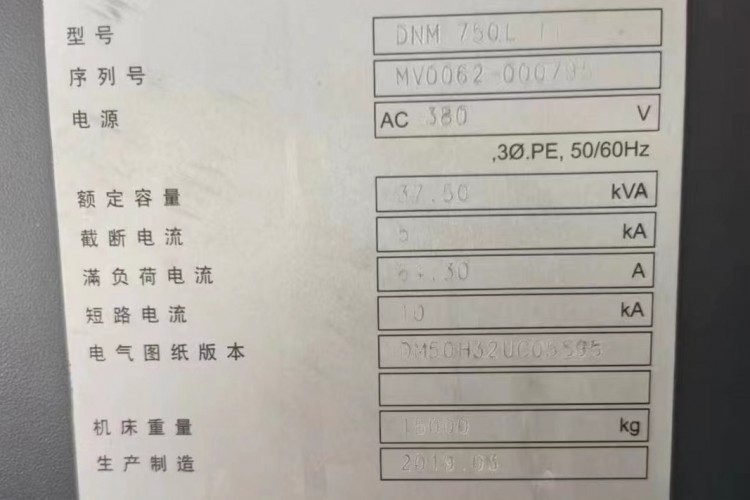 型号 DNM 750L II
序列号 MV0062-000795
电源 AC 380 V
,3Ø.PE, 50/60Hz
额定容量 37.50 kVA
截断电流 5 kA
滿负荷电流 A
短路电流 10 kA
电气图纸版本
机床重量 15000 kg
生产制造 2019.03